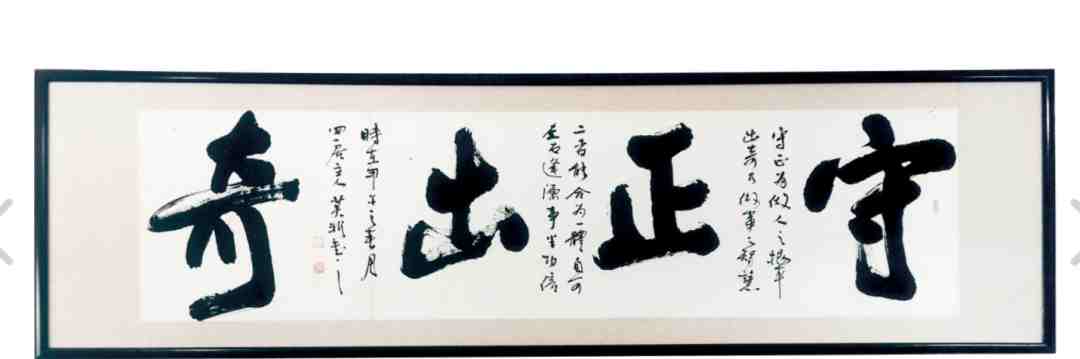 守正出奇
守正为做人之根本
出奇乃做事之智慧
二者能合为一體自可
左右逢源事半功倍
時在甲午之春月
主人